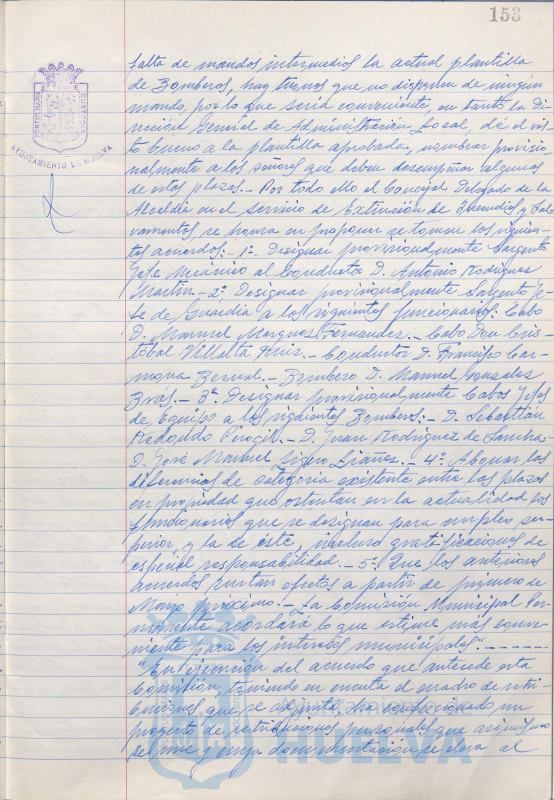 153
falta de mandos intermedios la actual plantilla
de Bomberos, hay turnos que no disponen de ningún
mando, por lo que sería conveniente, en tanto la Di-
rección General de Administración Local, dé el vis-
to bueno a la plantilla aprobada, nombrar provisio-
nalmente a los señores que deben desempeñar algunas
de estas plazas.- Por todo ello el Concejal Delegado de la
Alcaldía en el servicio de Extinción de Incendios y Sal-
vamentos se honra en proponer se tomen los siguien-
tes acuerdos:- 1º Designar provisionalmente Sargento
Jefe Mecánico al Conductor D. Antonio Rodríguez
Martín.- 2º Designar provisionalmente Sargento Je-
fe de Guardia a los siguientes funcionarios: Cabo
D. Manuel Márquez Fernández.- Cabo Don Cris-
tóbal Villalta Ruiz.- Conductor D. Francisco Car-
mona Bernal.- Bombero D. Manuel González
Brás.- 3º Designar provisionalmente Cabos Jefes
de Equipo a los siguientes Bomberos.- D. Sebastián
Redondo .- D. Juan Rodríguez de
D. José Manuel Ligero Liáñez.- 4º Abonar las
diferencias de categoría existente entre las plazas
en propiedad que ostentan en la actualidad los
funcionarios que se designan para empleo su-
perior y la de éste, incluso gratificaciones de
especial responsabilidad.- 5º Que los anteriores
acuerdos surtan efectos a partir de primero de
Mayo próximo.- La Comisión Municipal Per-
manente acordará lo que estime más conve-
niente para los intereses municipales".-----
"En ejecución del acuerdo que antecede esta
Comisión, teniendo en cuenta el cuadro de retri-
buciones que se adjunta, ha confeccionado un
proyecto de retribuciones personales que
de y cuya documentación se eleva al
PORTUS MARIS
CUSTODIA
AYUNTAMIENTO DE HUELVA
HUELVA